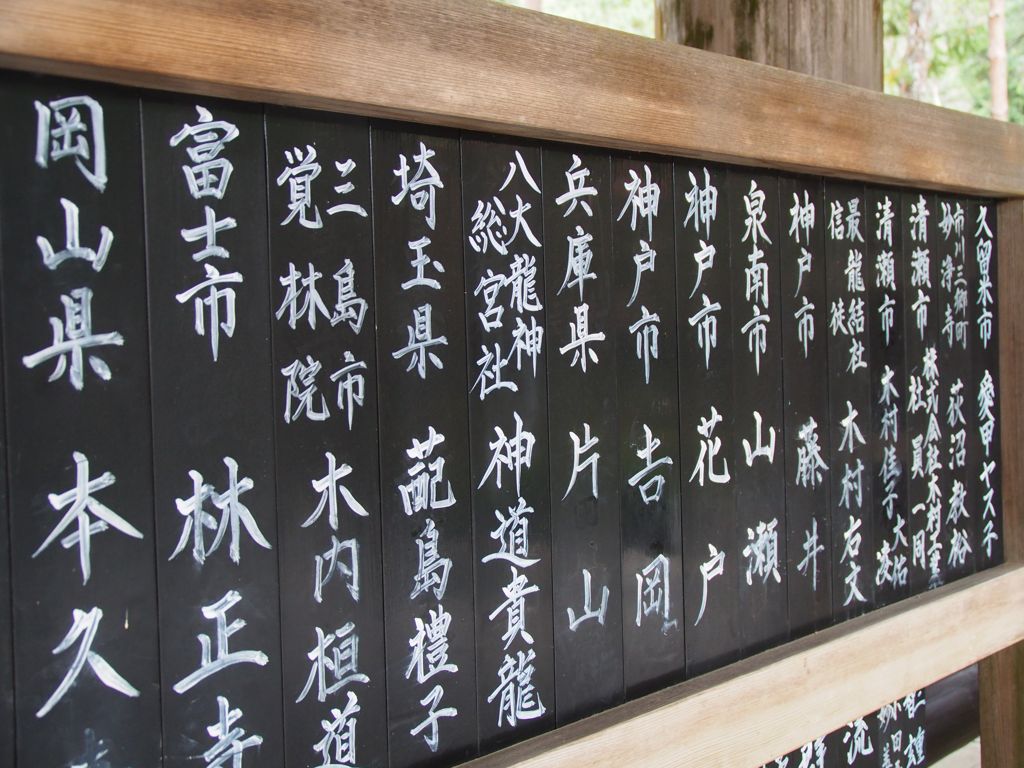 久留米市 愛甲ヤス子
市川三郷町
妙浄寺 荻沼教裕
清瀬市 株式会社木村工業
社員一同
清瀬市 木村佳子 大祐
最龍結社
信徒 木村右文
神戸市 藤井
泉南市 山瀬
神戸市 花戸
神戸市 吉岡
兵庫県 片山
八大龍神
総宮社 神道貴龍
埼玉県 島禮子
三島市
覚林院 木内桓道
富士市 林正寺
岡山県 本久
流